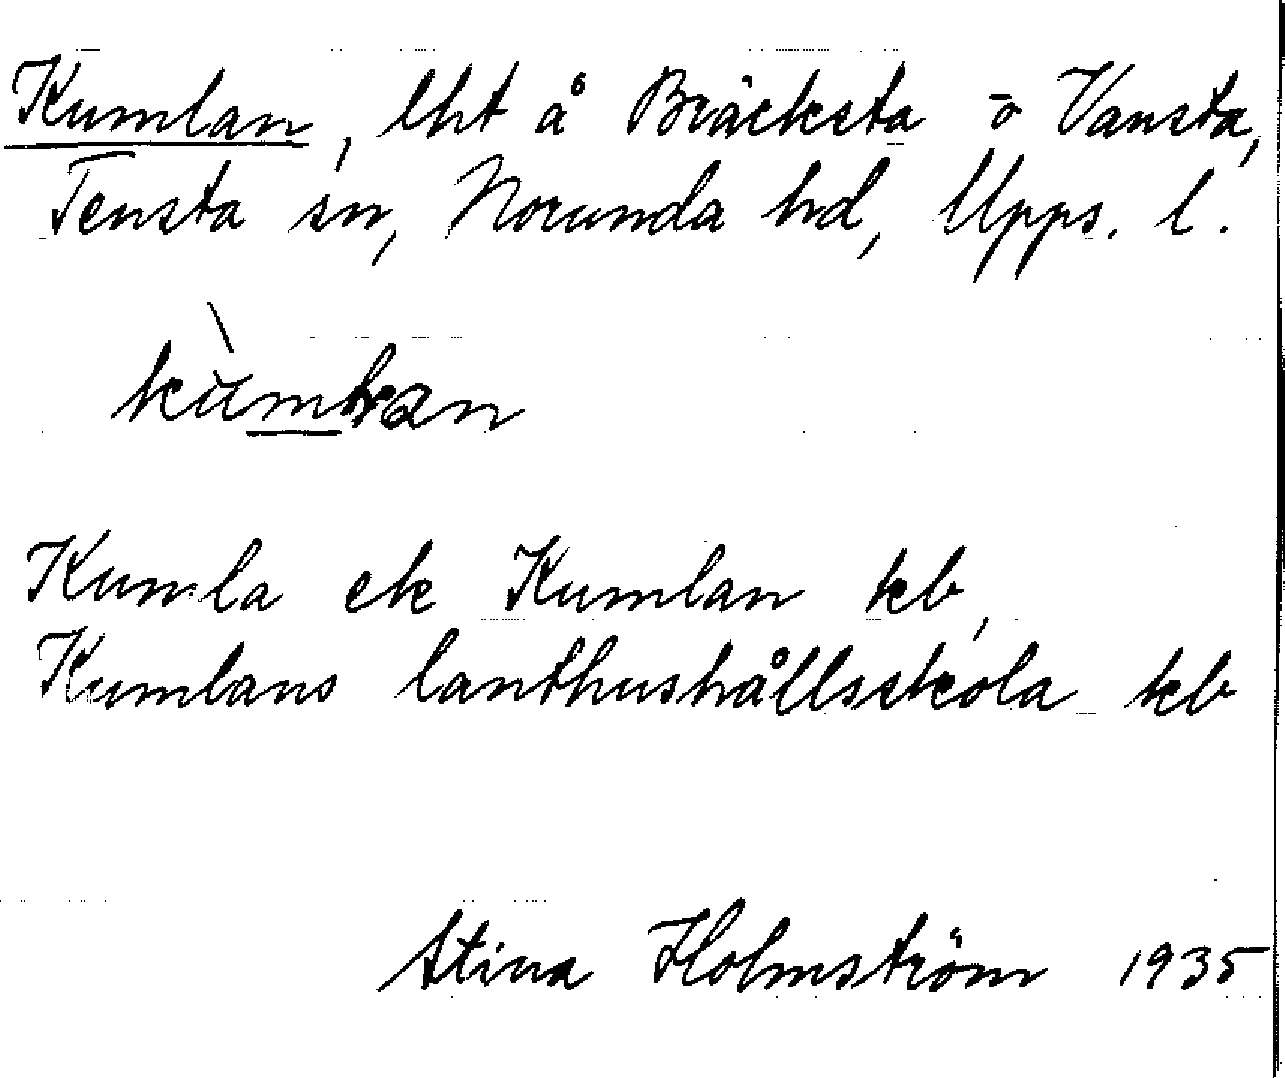 Kumlan, lht å Bräcksta o Vansta,
Tensta sn, Norunda hd, Upps. l.
Kumla ek Kumlan kb,
Kumlans lanthushållsskola kb
Stina Holmström 1935